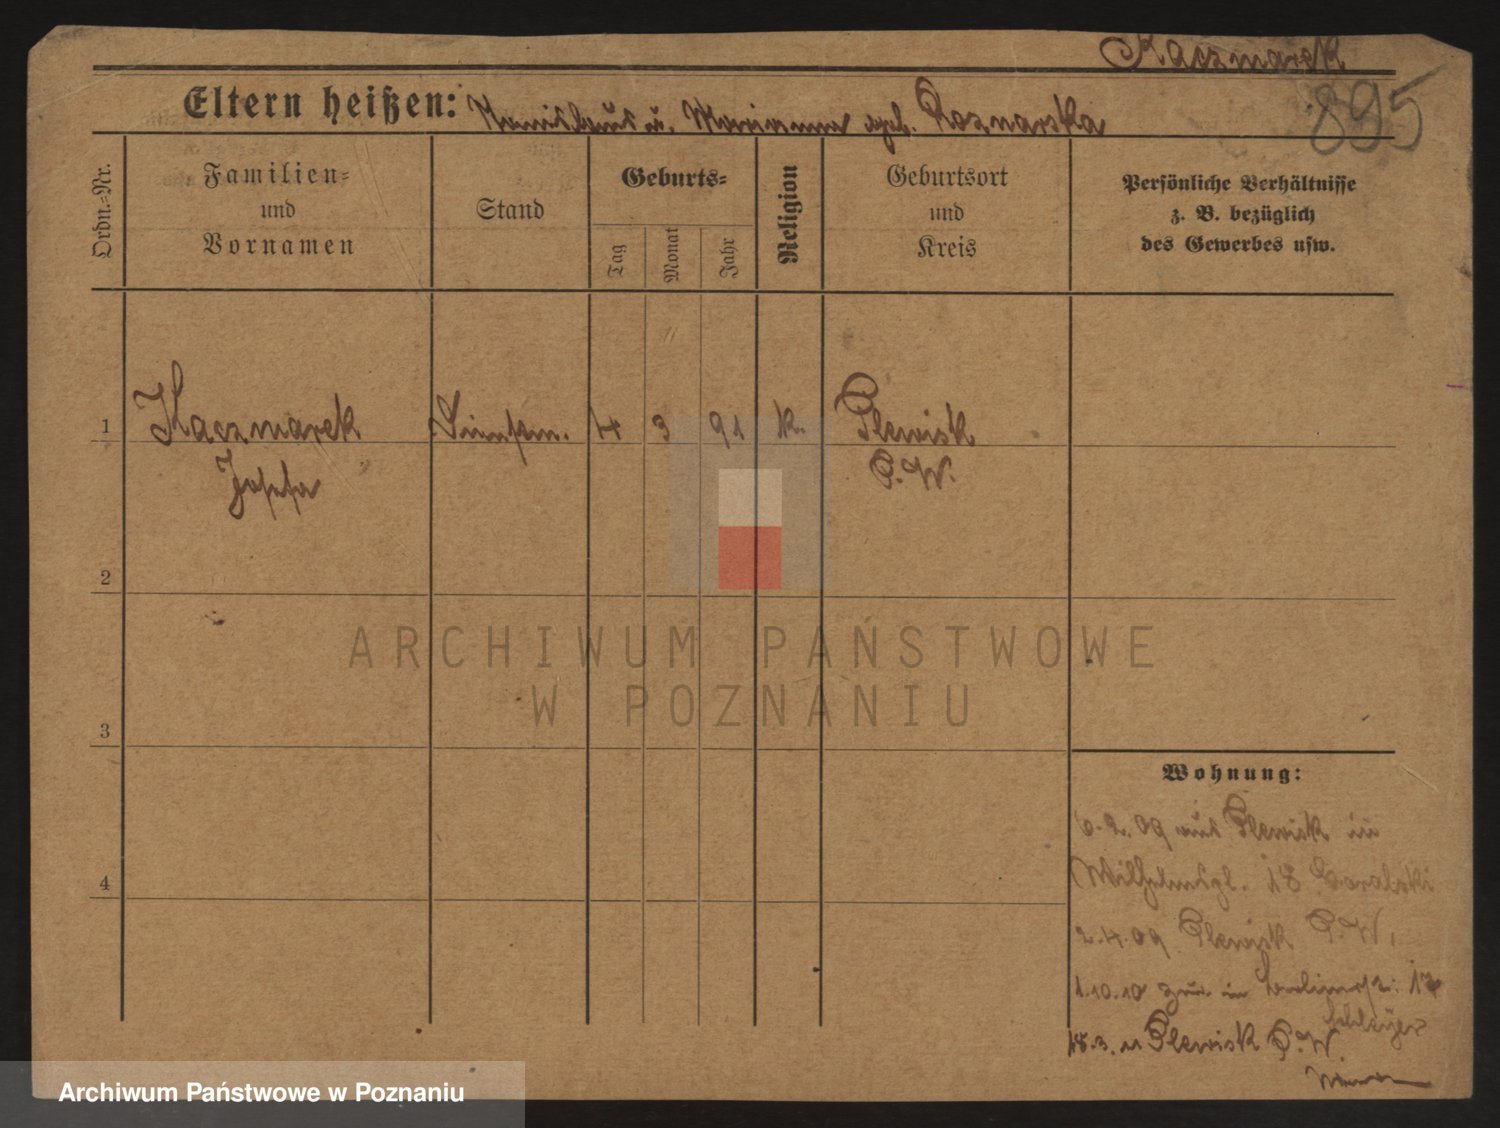 Kaczmarek
895
Eltern heißen: Stanislaus u. Marianna geb. Poznarska
Ordn.=Nr.
Familien=
und
Vornamen
Stand
Geburts=
Tag
Monat
Jahr
Religion
Geburtsort
und
Kreis
Persönliche Verhältnisse
z. B. bezüglich
des Gewerbes usw.
1
Kaczmarek
Josefa
Dienstm.
4
3
91
k.
Plewisk
P.W.
2
3
4
ARCHIWUM PAŃSTWOWE
W POZNANIU
Wohnung:
6.2.09 aus Plewisk in
Wilhelmspl. 18
2.4.09 Plewisk P.W.
1.10.10 zur. in Berlinerstr:
18.3.11 Plewisk P.W.
Archiwum Państwowe w Poznaniu